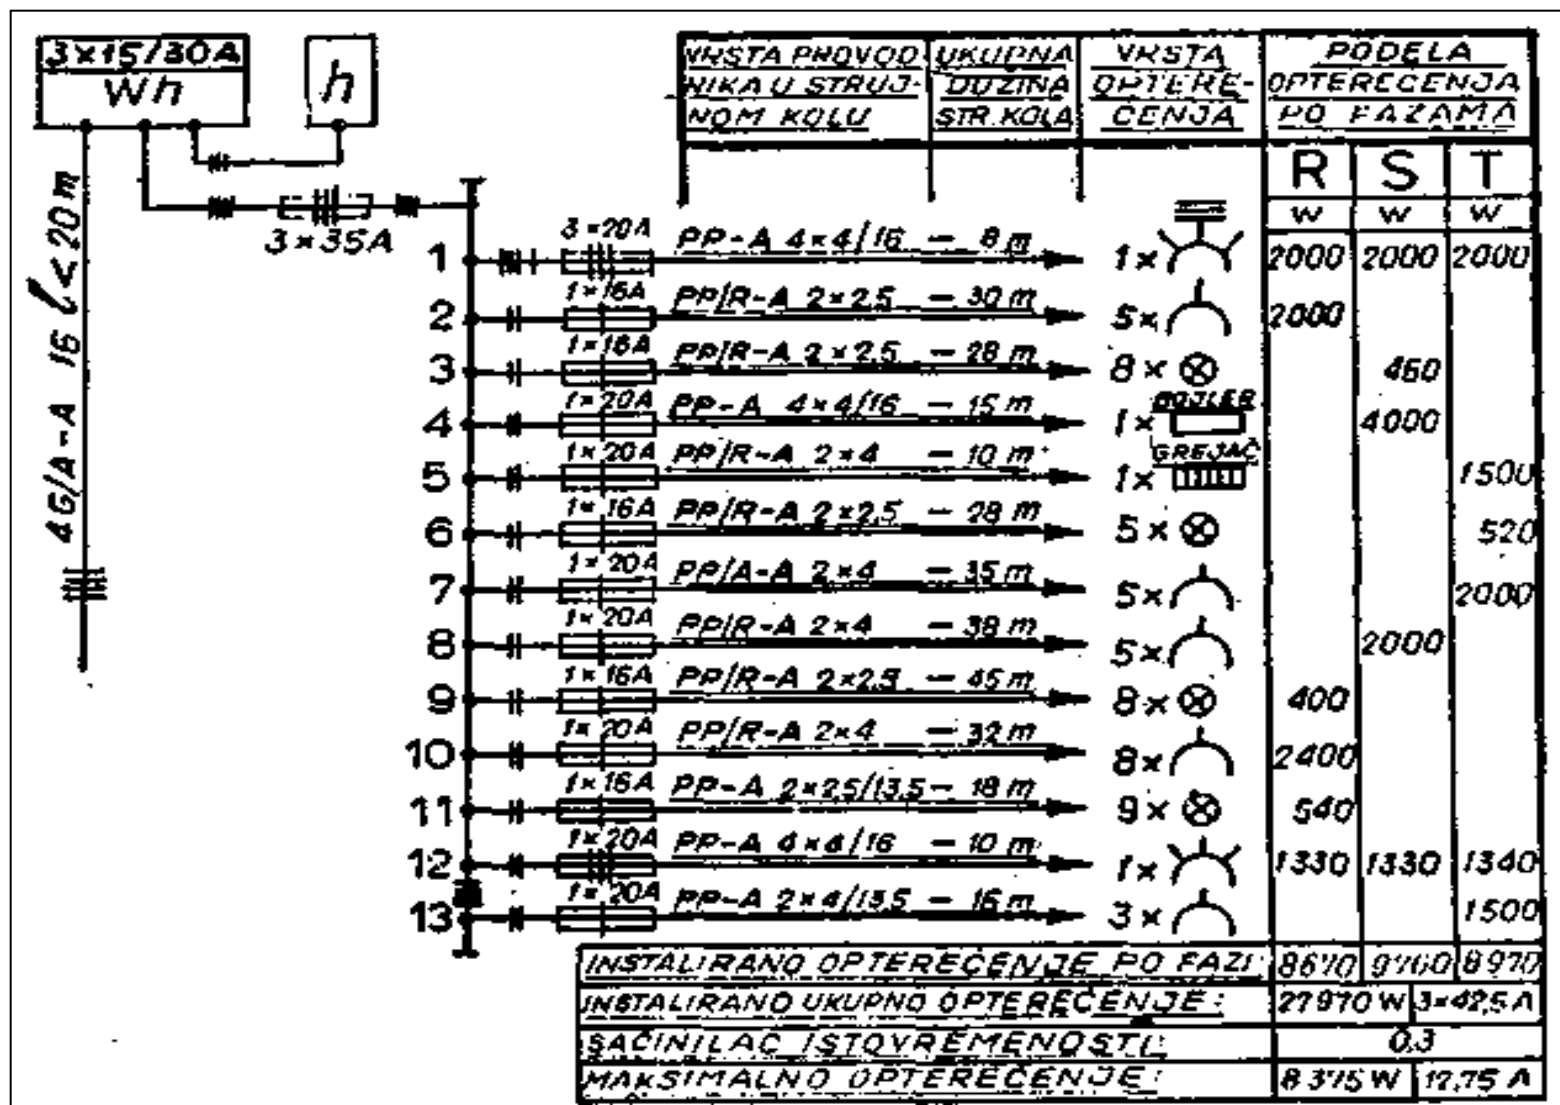 3×15/30A
Wh
h
3×35A
4G/A-A 16 l<20m
VRSTA PROVOD
NIKA U STRUJ-
NOM KOLU
UKUPNA
DUŽINA
STR. KOLA
VRSTA
OPTERE-
ĆENJA
PODELA
OPTEREĆENJA
PO FAZAMA
R S T
W W W
1 3×20A PP-A 4×4/16 - 8m 1× 2000 2000 2000
2 1×16A PP/R-A 2×2,5 - 30m 5× 2000
3 1×16A PP/R-A 2×2,5 - 28m 8× 460
4 1×20A PP-A 4×4/16 - 15m 1× BOJLER 4000
5 1×20A PP/R-A 2×4 - 10m 1× GREJAČ 1500
6 1×16A PP/R-A 2×2,5 - 28m 5× 520
7 1×20A PP/A-A 2×4 - 35m 5× 2000
8 1×20A PP/R-A 2×4 - 38m 5× 2000
9 1×16A PP/R-A 2×2,5 - 45m 8× 400
10 1×20A PP/R-A 2×4 - 32m 8× 2400
11 1×16A PP-A 2×2,5/13,5 - 18m 9× 540
12 1×20A PP-A 4×4/16 - 10m 1× 1330 1330 1340
13 1×20A PP-A 2×4/13,5 - 16m 3× 1500
INSTALIRANO OPTEREĆENJE PO FAZI 8670 8970
INSTALIRANO UKUPNO OPTEREĆENJE: 27970 W 3×42,5 A
SAČINILAC ISTOVREMENOSTI: 0,3
MAKSIMALNO OPTEREĆENJE: 8375 W 12,75 A